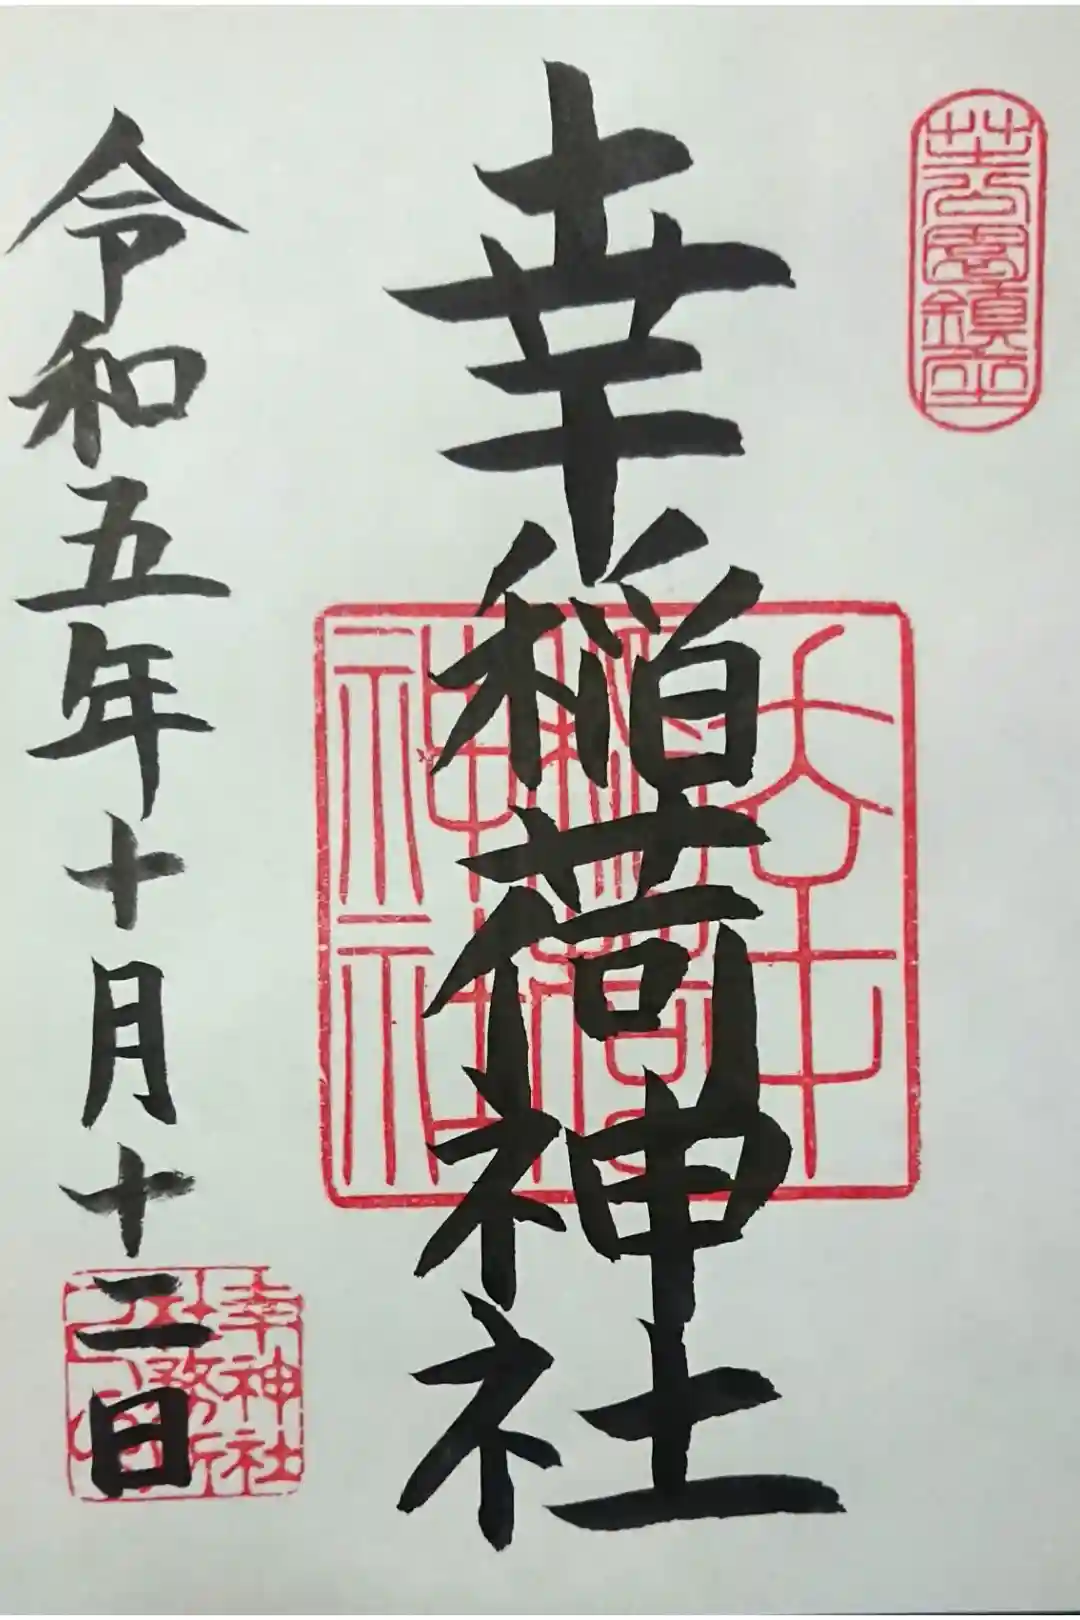 芝公園鎮座
幸稲荷神社
幸
稲荷
神社
令和五年十月十二日
幸神社
社務所
之印